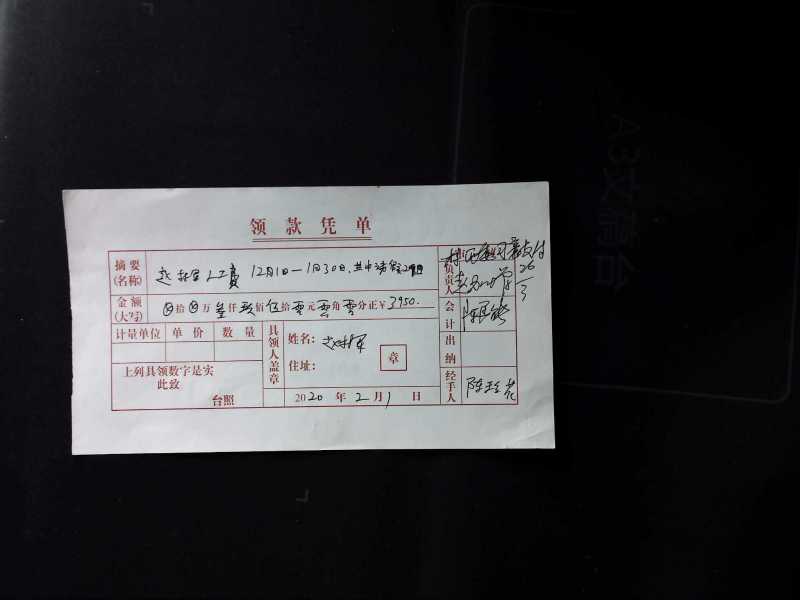 领款凭单
摘要
(名称)
人工费 12月1日—1月30日,其中请假2
金额
(大写)
⊗拾⊗万叁仟玖佰伍拾零元零角零分正￥3950.
计量单位 单价 数量
上列具领数字是实
此致
台照
具领人盖章
姓名:
住址:
章
2020年2月1日
负责人
同意支付
26/3
会计
出纳
经手人
陈
A3文稿台